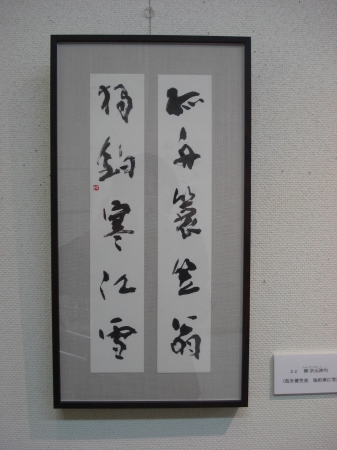 孤舟簑笠翁
獨釣寒江雪